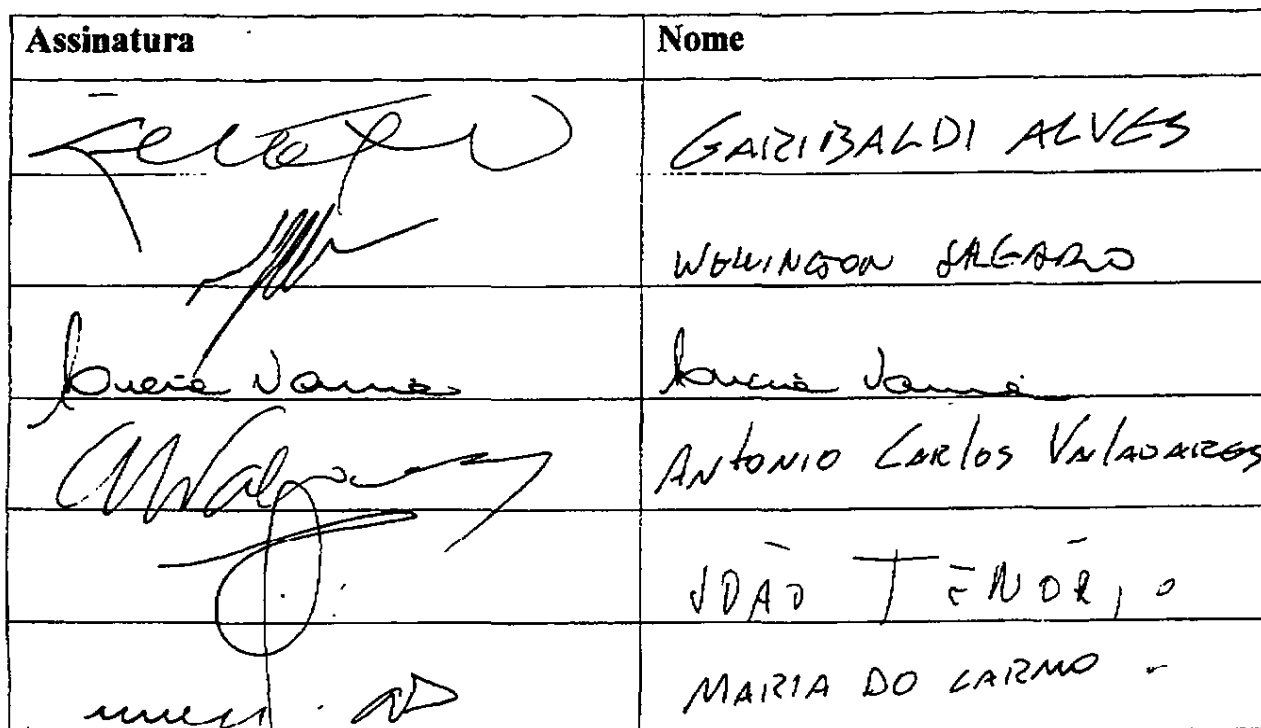 Assinatura Nome
GARIBALDI ALVES
WELLINGTON SALGADO
Lucia Vania Lucia Vania
ANTONIO CARLOS VALADARES
JOÃO TENÓRIO
MARIA DO CARMO